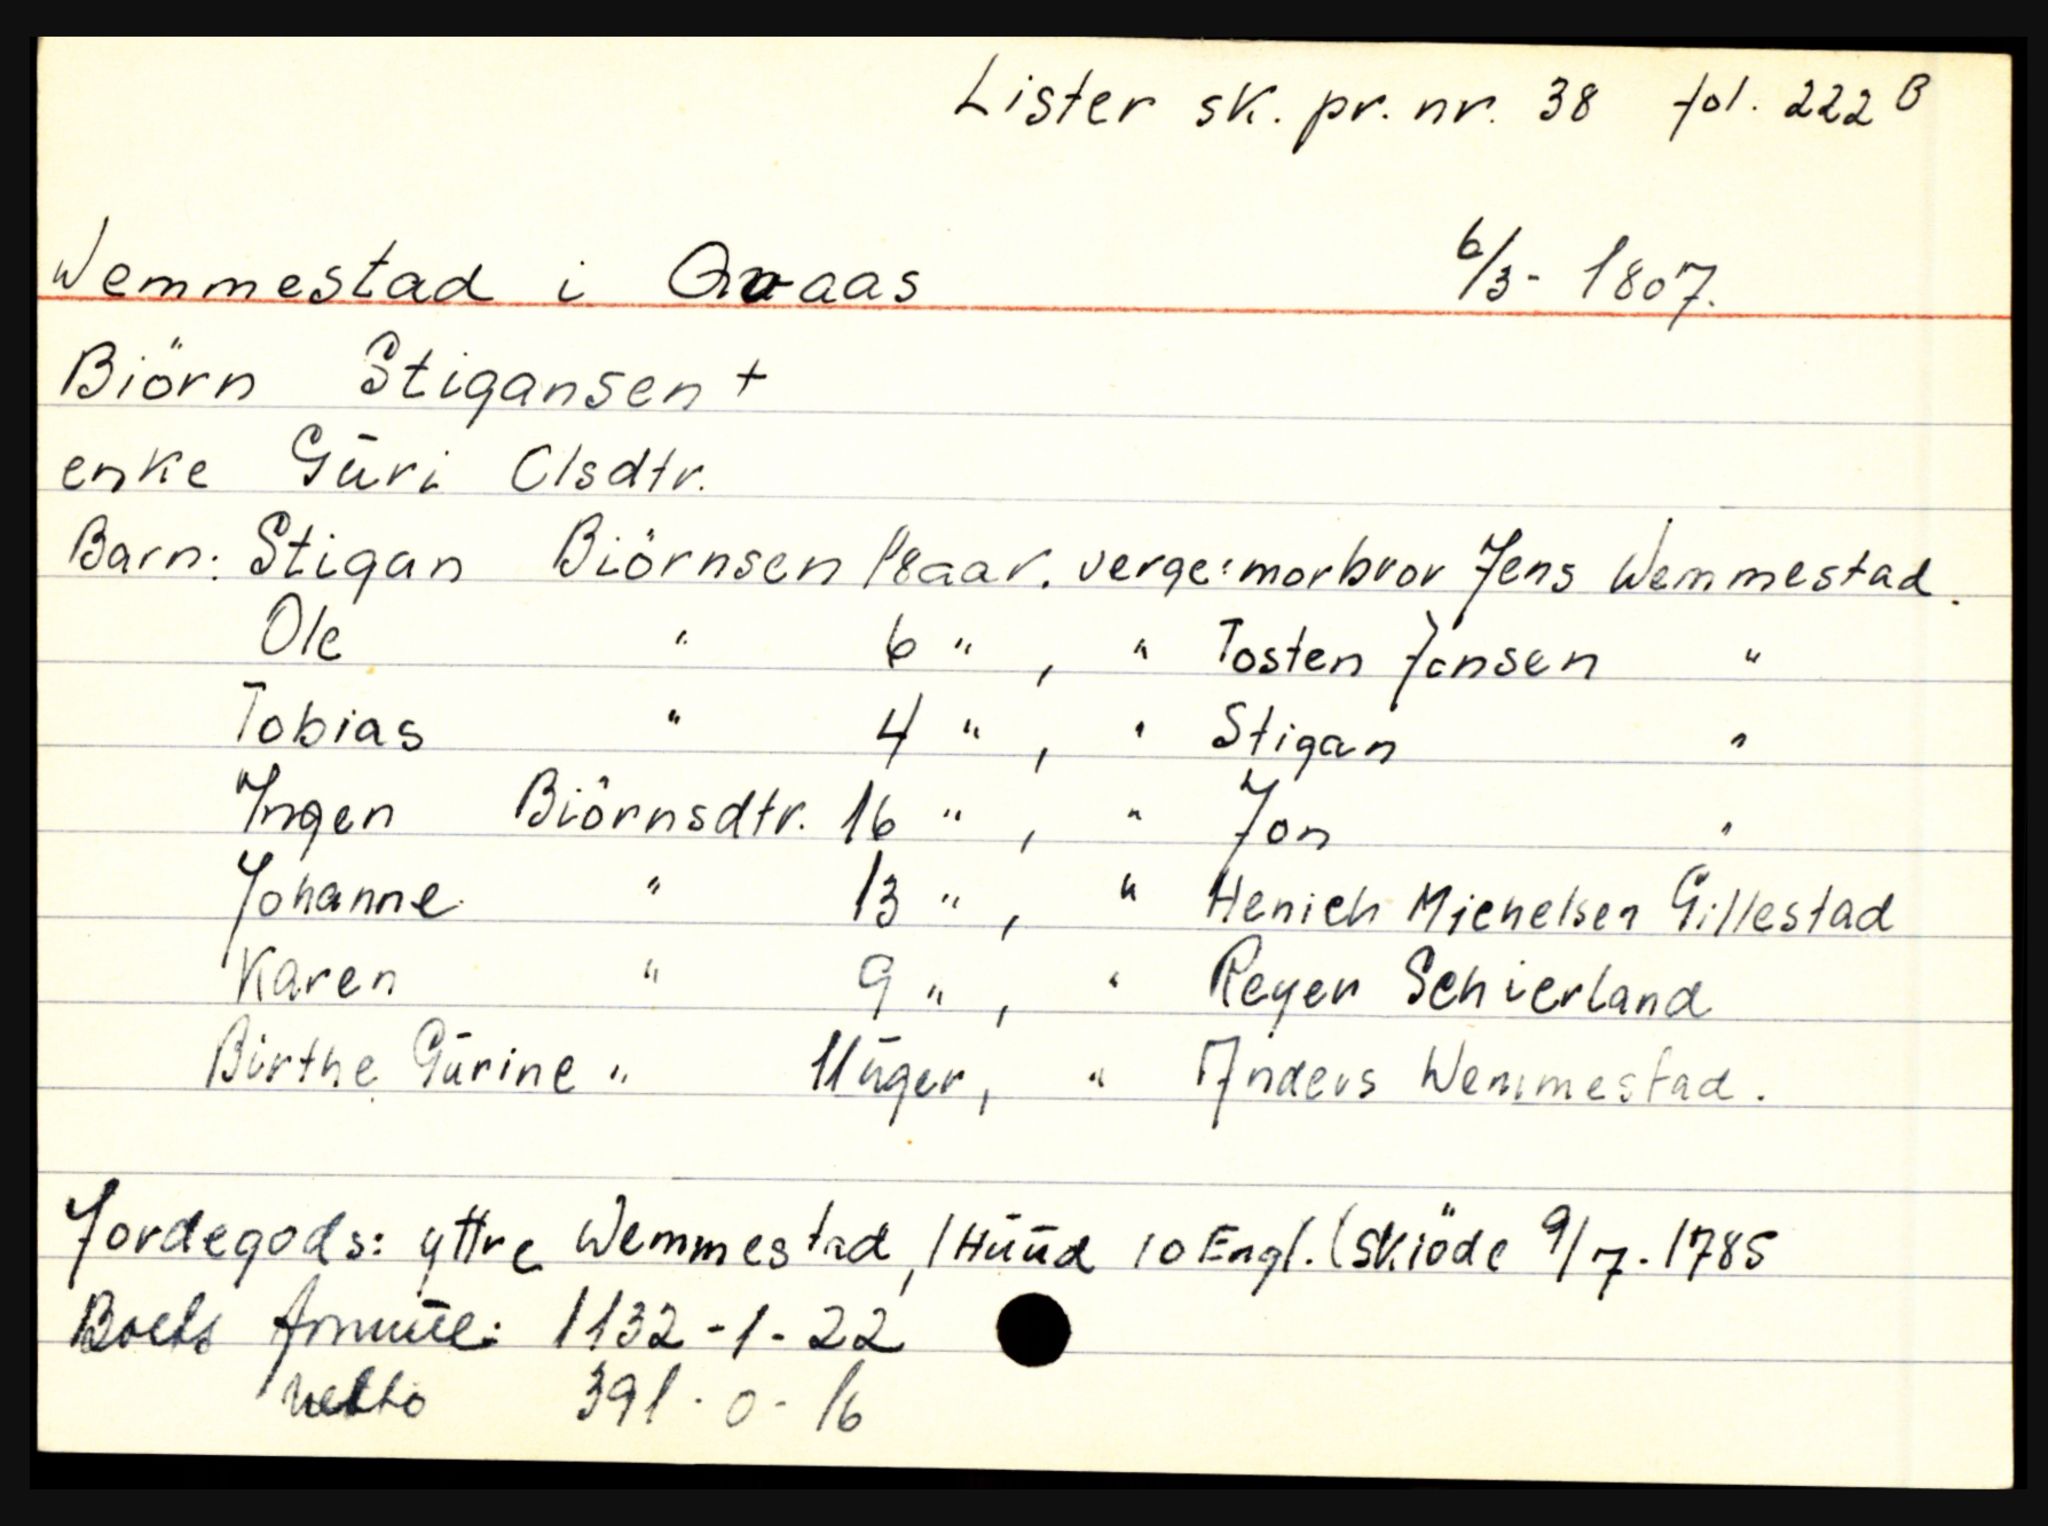 Lister sk. pr. nr. 38 fol. 222 B
Wemmestad i Qvaas 6/3 - 1807.
Biörn Stigansen +
enke Gūri Olsdtr.
Barn: Stigan Biörnsen 18 aar. verge: morbror Jens Wemmestad.
Ole " 6 " , " Tosten Jonsen "
Tobias " 4 " , " Stigan "
Ingen Biörnsdtr. 16 " , " Jon "
Johanne " 13 " , " Henich Michelsen Gillestad
Karen " 9 " , " Reyer Schierland
Birthe Gūrine " 11 ūger, " Anders Wemmestad.
Jordegods: yttre Wemmestad, 1 Hūūd 10 Engl. (skiöde 9/7 - 1785
Boets 1132 - 1 - 22
netto 391 - 0 - 16